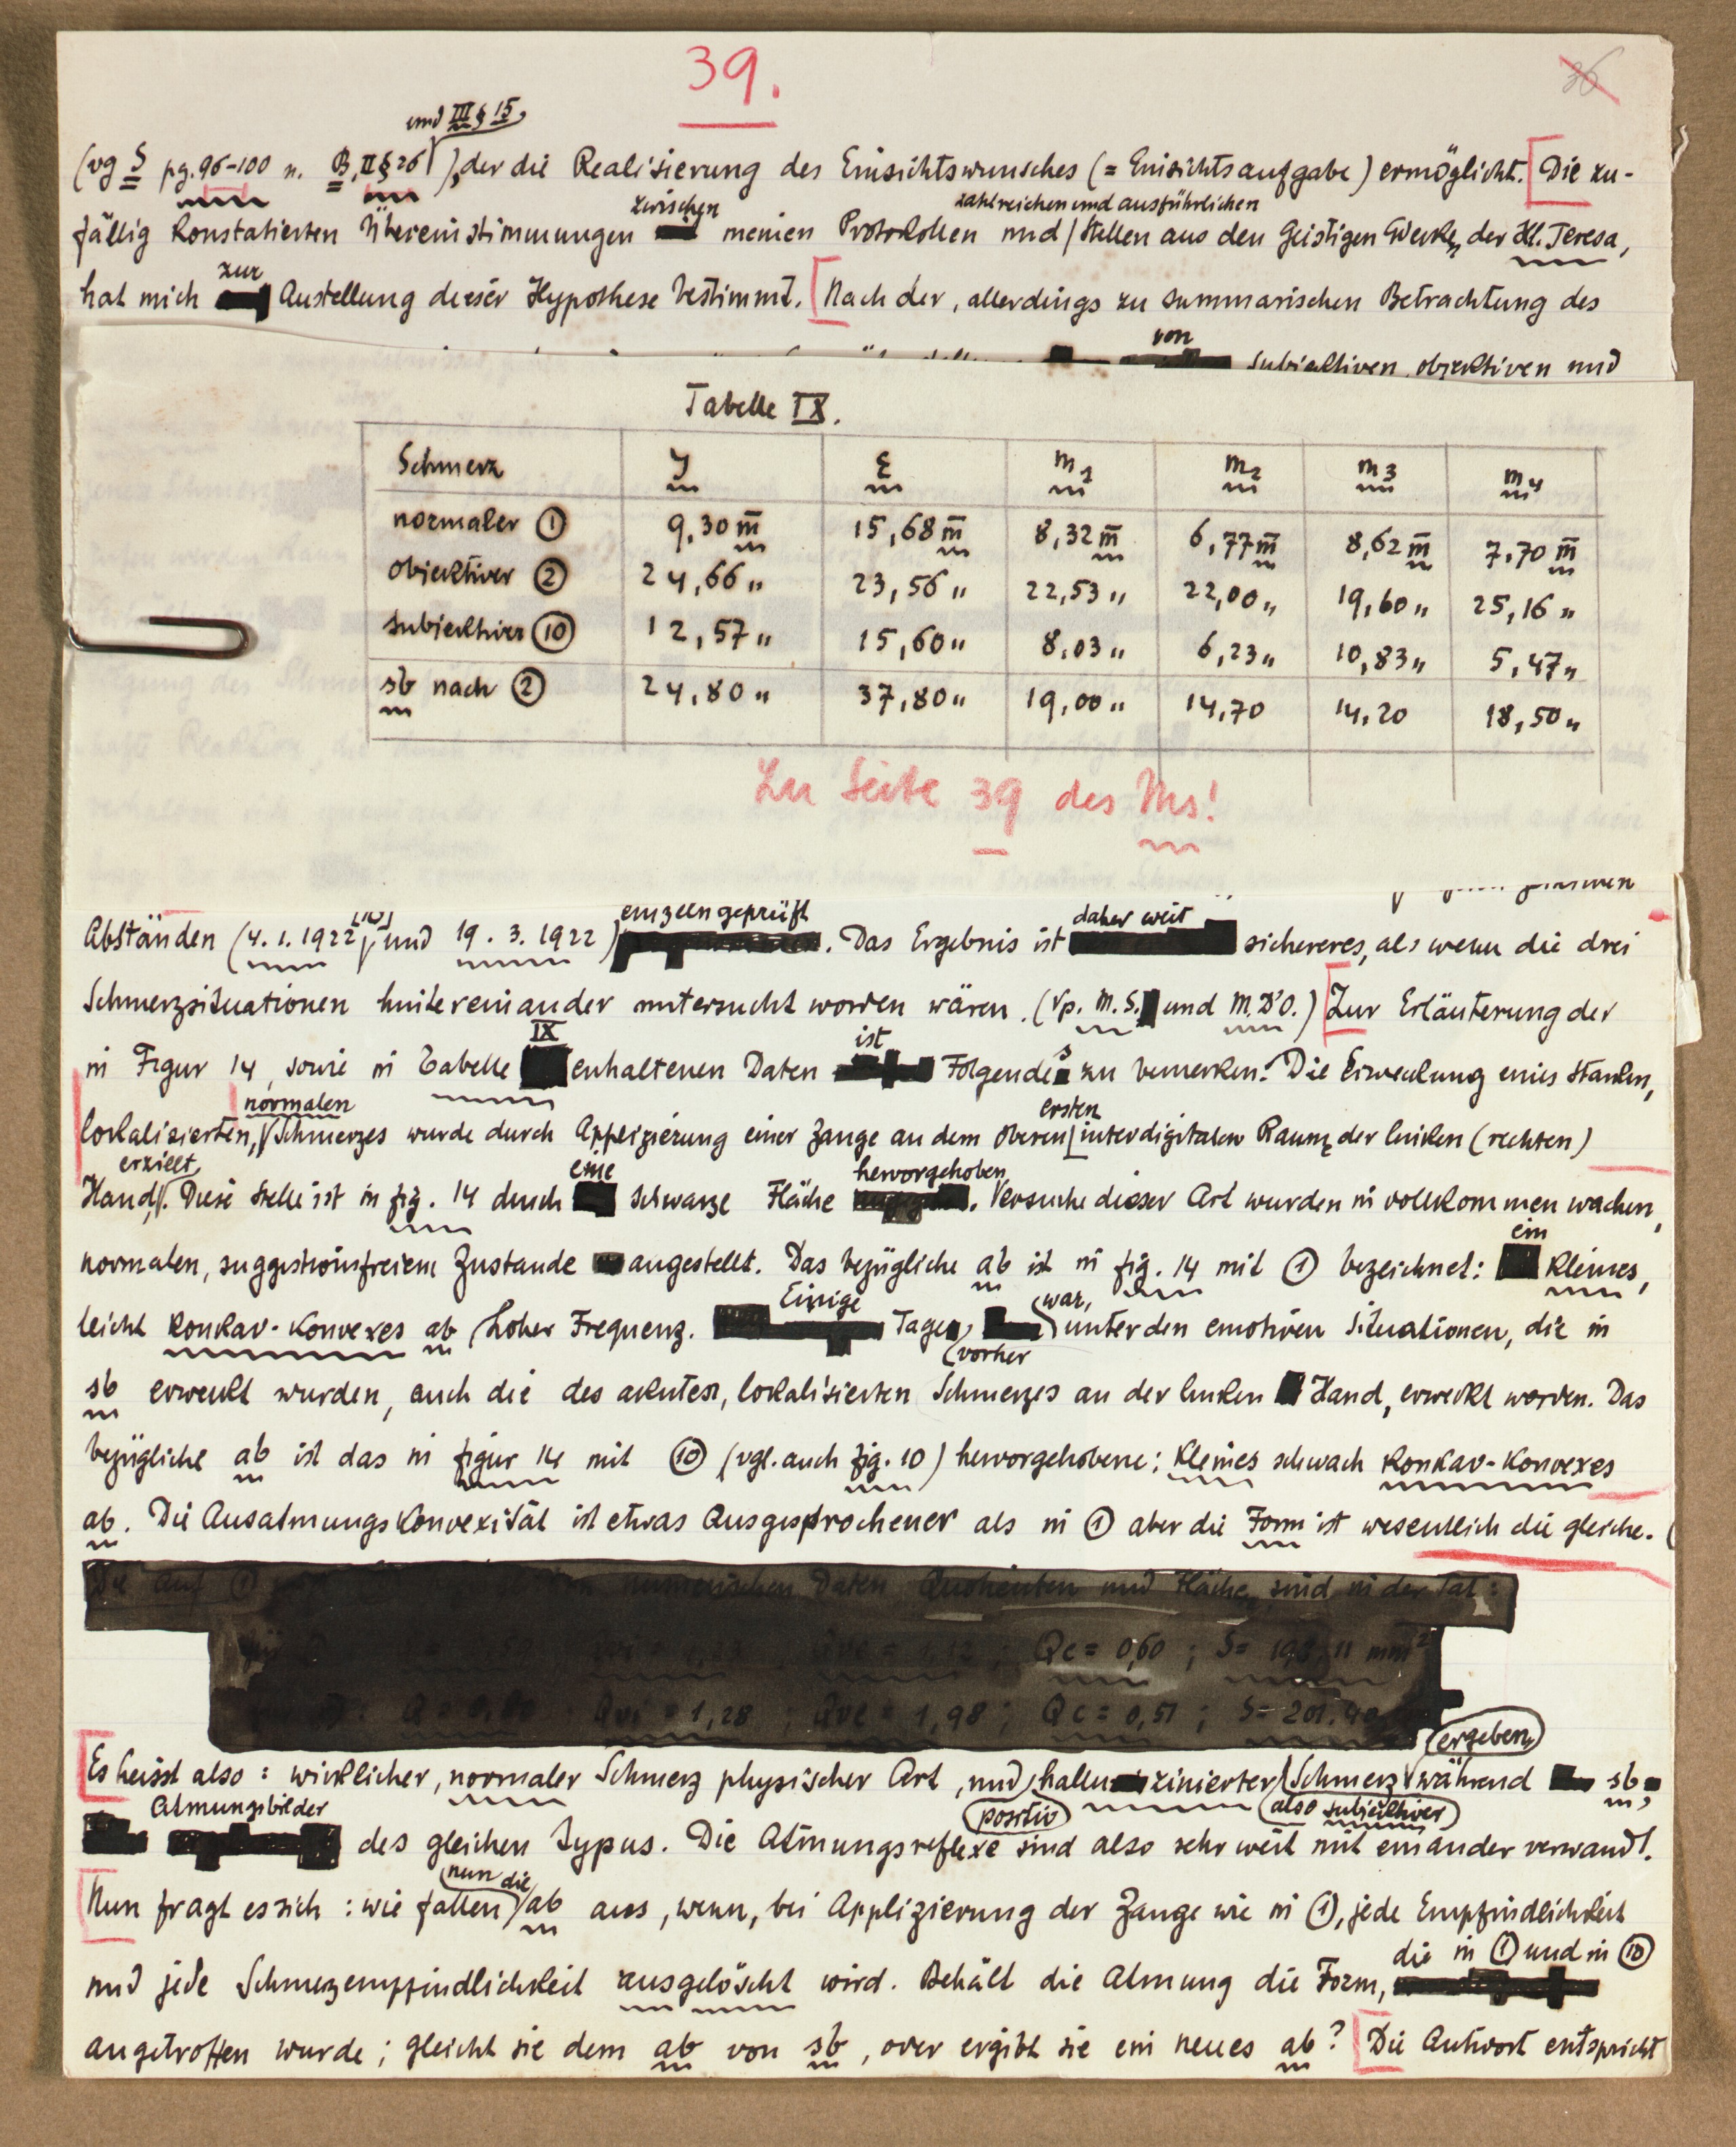 39.
36
und III § 15,
(vg S pg. 96-100 u. B, II § 26), der die Realisierung des Einsichtswunsches (= Einsichtsaufgabe) ermöglicht. [Die zu-
zwischen zahlreichen und ausführlichen
fällig konstatierten Übereinstimmungen meinen Protokollen und Stellen aus den Geistigen Werken der Hl. Teresa,
zur
hat mich Austellung dieser Hypothese bestimmt. [Nach der, allerdings zu summarischen Betrachtung des
von
subjektiven, objektiven und
Tabelle IX.
Schmerz J E m1 m2 m3 m4
normaler ① 9,30 m 15,68 m 8,32 m 6,77 m 8,62 m 7,70 m
objektiver ② 24,66 " 23,56 " 22,53 " 22,00 " 19,60 " 25,16 "
subjektiver ⑩ 12,57 " 15,60 " 8,03 " 6,23 " 10,83 " 5,47 "
sb nach ② 24,80 " 37,80 " 19,00 " 14,70 14,20 18,50 "
Zu Seite 39 des Ms!
einzeln geprüft daher weit
Abständen (4. 1. 1922 und 19. 3. 1922). Das Ergebnis ist sichereres, als wenn die drei
Schmerzsituationen hintereinander untersucht worden wären. (Vp. M. S. und M. D'O.) [Zur Erläuterung der
IX ist
in Figur 14, sowie in Tabelle enhaltenen Daten Folgendes zu bemerken: Die Erweckung eines starken,
normalen ersten
lokalisierten, Schmerzes wurde durch Applizierung einer Zange an dem oberen interdigitalen Raume der linken (rechten)
erzielt eine hervorgehoben
Hand. Diese Stelle ist in fig. 14 durch schwarze Fläche. Versuche dieser Art wurden in vollkommen wachen,
ein
normalen, suggestionsfreiem Zustande angestellt. Das bezügliche ab ist in fig. 14 mit ① bezeichnet: kleines,
Einige war,
leicht konkav-konvexes ab hoher Frequenz. Tage, unter den emotiven Situationen, die in
vorher
sb erweckt wurden, auch die des akuten, lokalisierten Schmerzes an der linken Hand, erweckt worden. Das
bezügliche ab ist das in figur 14 mit ⑩ (vgl. auch fig. 10) hervorgehobene: kleines schwach konkav-konvexes
ab. Die Ausatmungskonvexität ist etwas ausgesprochener als in ① aber die Form ist wesentlich die gleiche.
Die auf ① numerischen Daten Quotienten und Fläche, sind in der Tat:
= 1,12 ; Qc = 0,60 ; S = 198,11 mm²
Qvi = 1,28 ; Qve = 1,98 ; Qc = 0,51 ; S = 201,40
ergeben,
[Es heisst also: wirklicher, normaler Schmerz physischer Art, und halluzinierter Schmerz während sb,
Atmungsbilder positiv also subjektiver
des gleichen Typus. Die Atmungsreflexe sind also sehr weit mit einander verwandt.
nun die
[Nun fragt es sich: wie fallen ab aus, wenn, bei Applizierung der Zange wie in ①, jede Empfindlichkeit
die in ① und in ⑩
und jede Schmerzempfindlichkeit ausgelöscht wird. Behält die Atmung die Form,
angetroffen wurde; gleicht sie dem ab von sb, oder ergibt sie ein neues ab? [Die Antwort entspricht